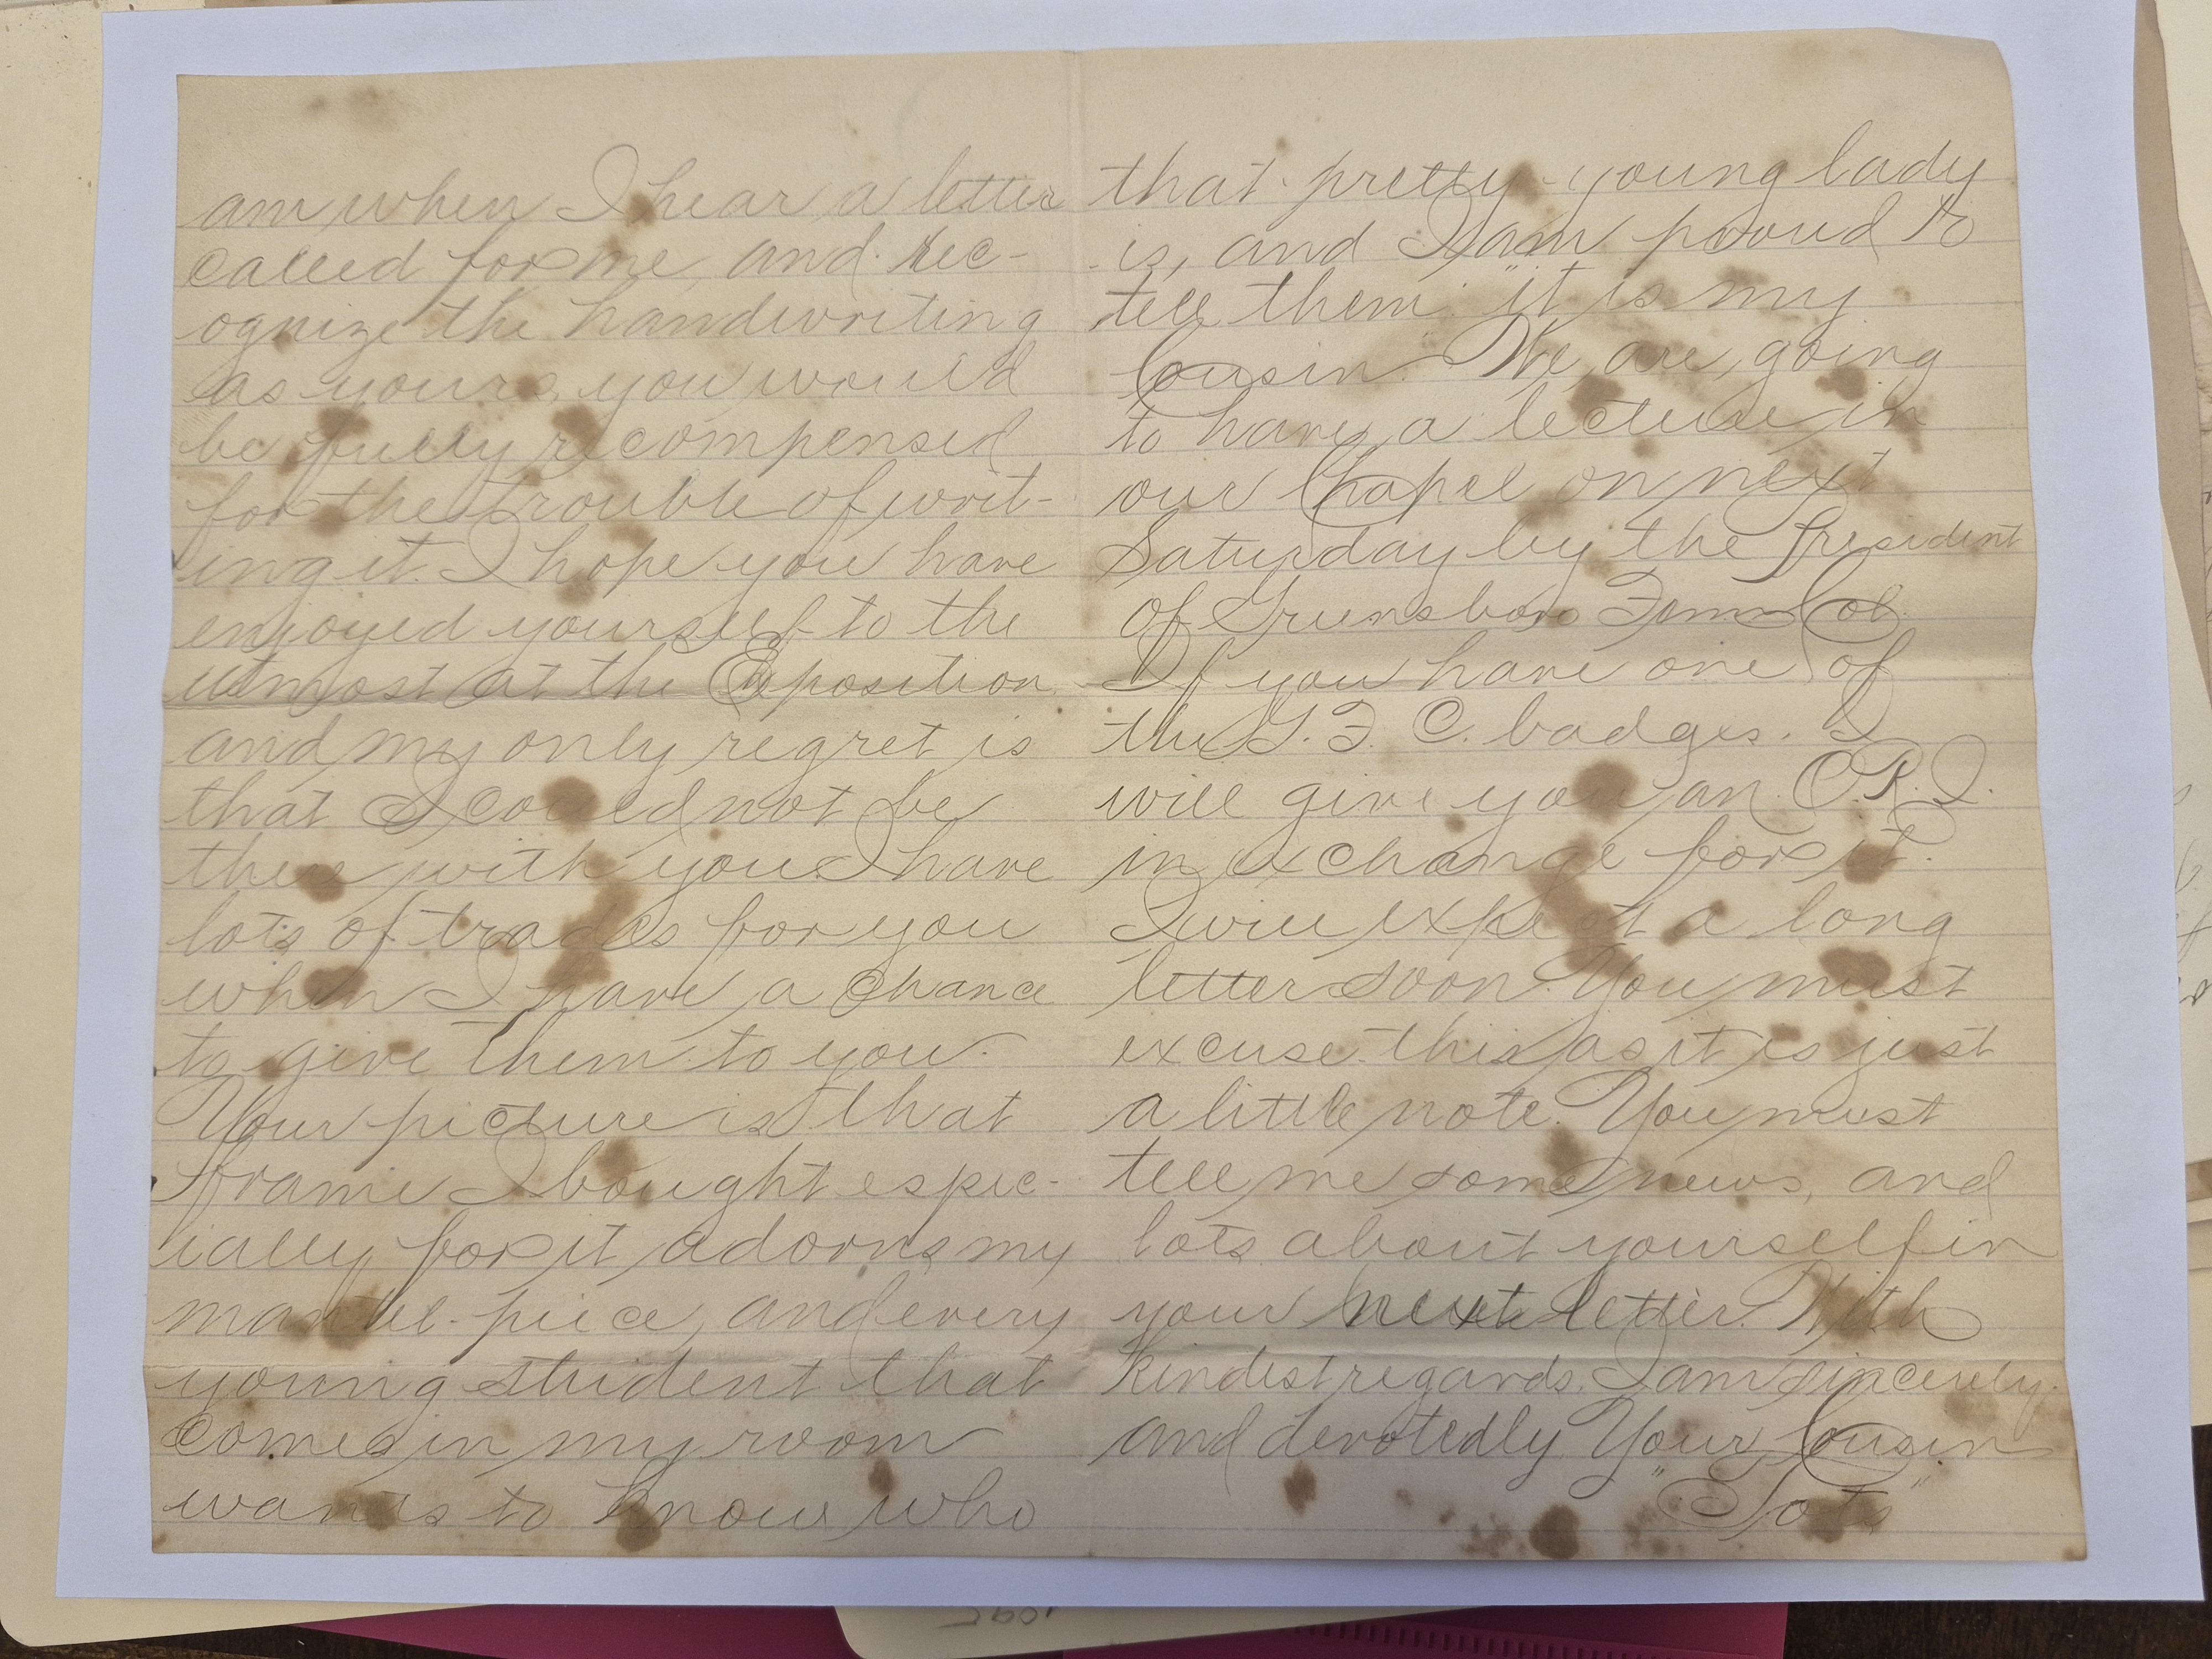 am when I hear a letter
called for me, and rec-
ognize the handwriting
as yours, you would
be fully recompensed
for the trouble of writ-
ing it. I hope you have
enjoyed yourself to the
utmost at the Exposition
and my only regret is
that I could not be
there with you. I have
lots of trades for you
when I have a chance
to give them to you.
Your picture is that
frame I bought espec-
ially for it adorns my
mantel-piece, and every
young student that
comes in my room
wants to know who
that pretty young lady
is, and I am proud to
tell them "it is my
Cousin." We are going
to have a lecture in
our Chapel on next
Saturday by the President
of Greensboro Fem Col.
If you have one of
the G. F. C. badges. I
will give you an O.R.I.
in exchange for it.
I will expect a long
letter soon. You must
excuse this as it is just
a little note. You must
tell me some news, and
lots about yourself in
your next letter. With
kindest regards. I am sincerely.
and devotedly Your Cousin
"Tots"